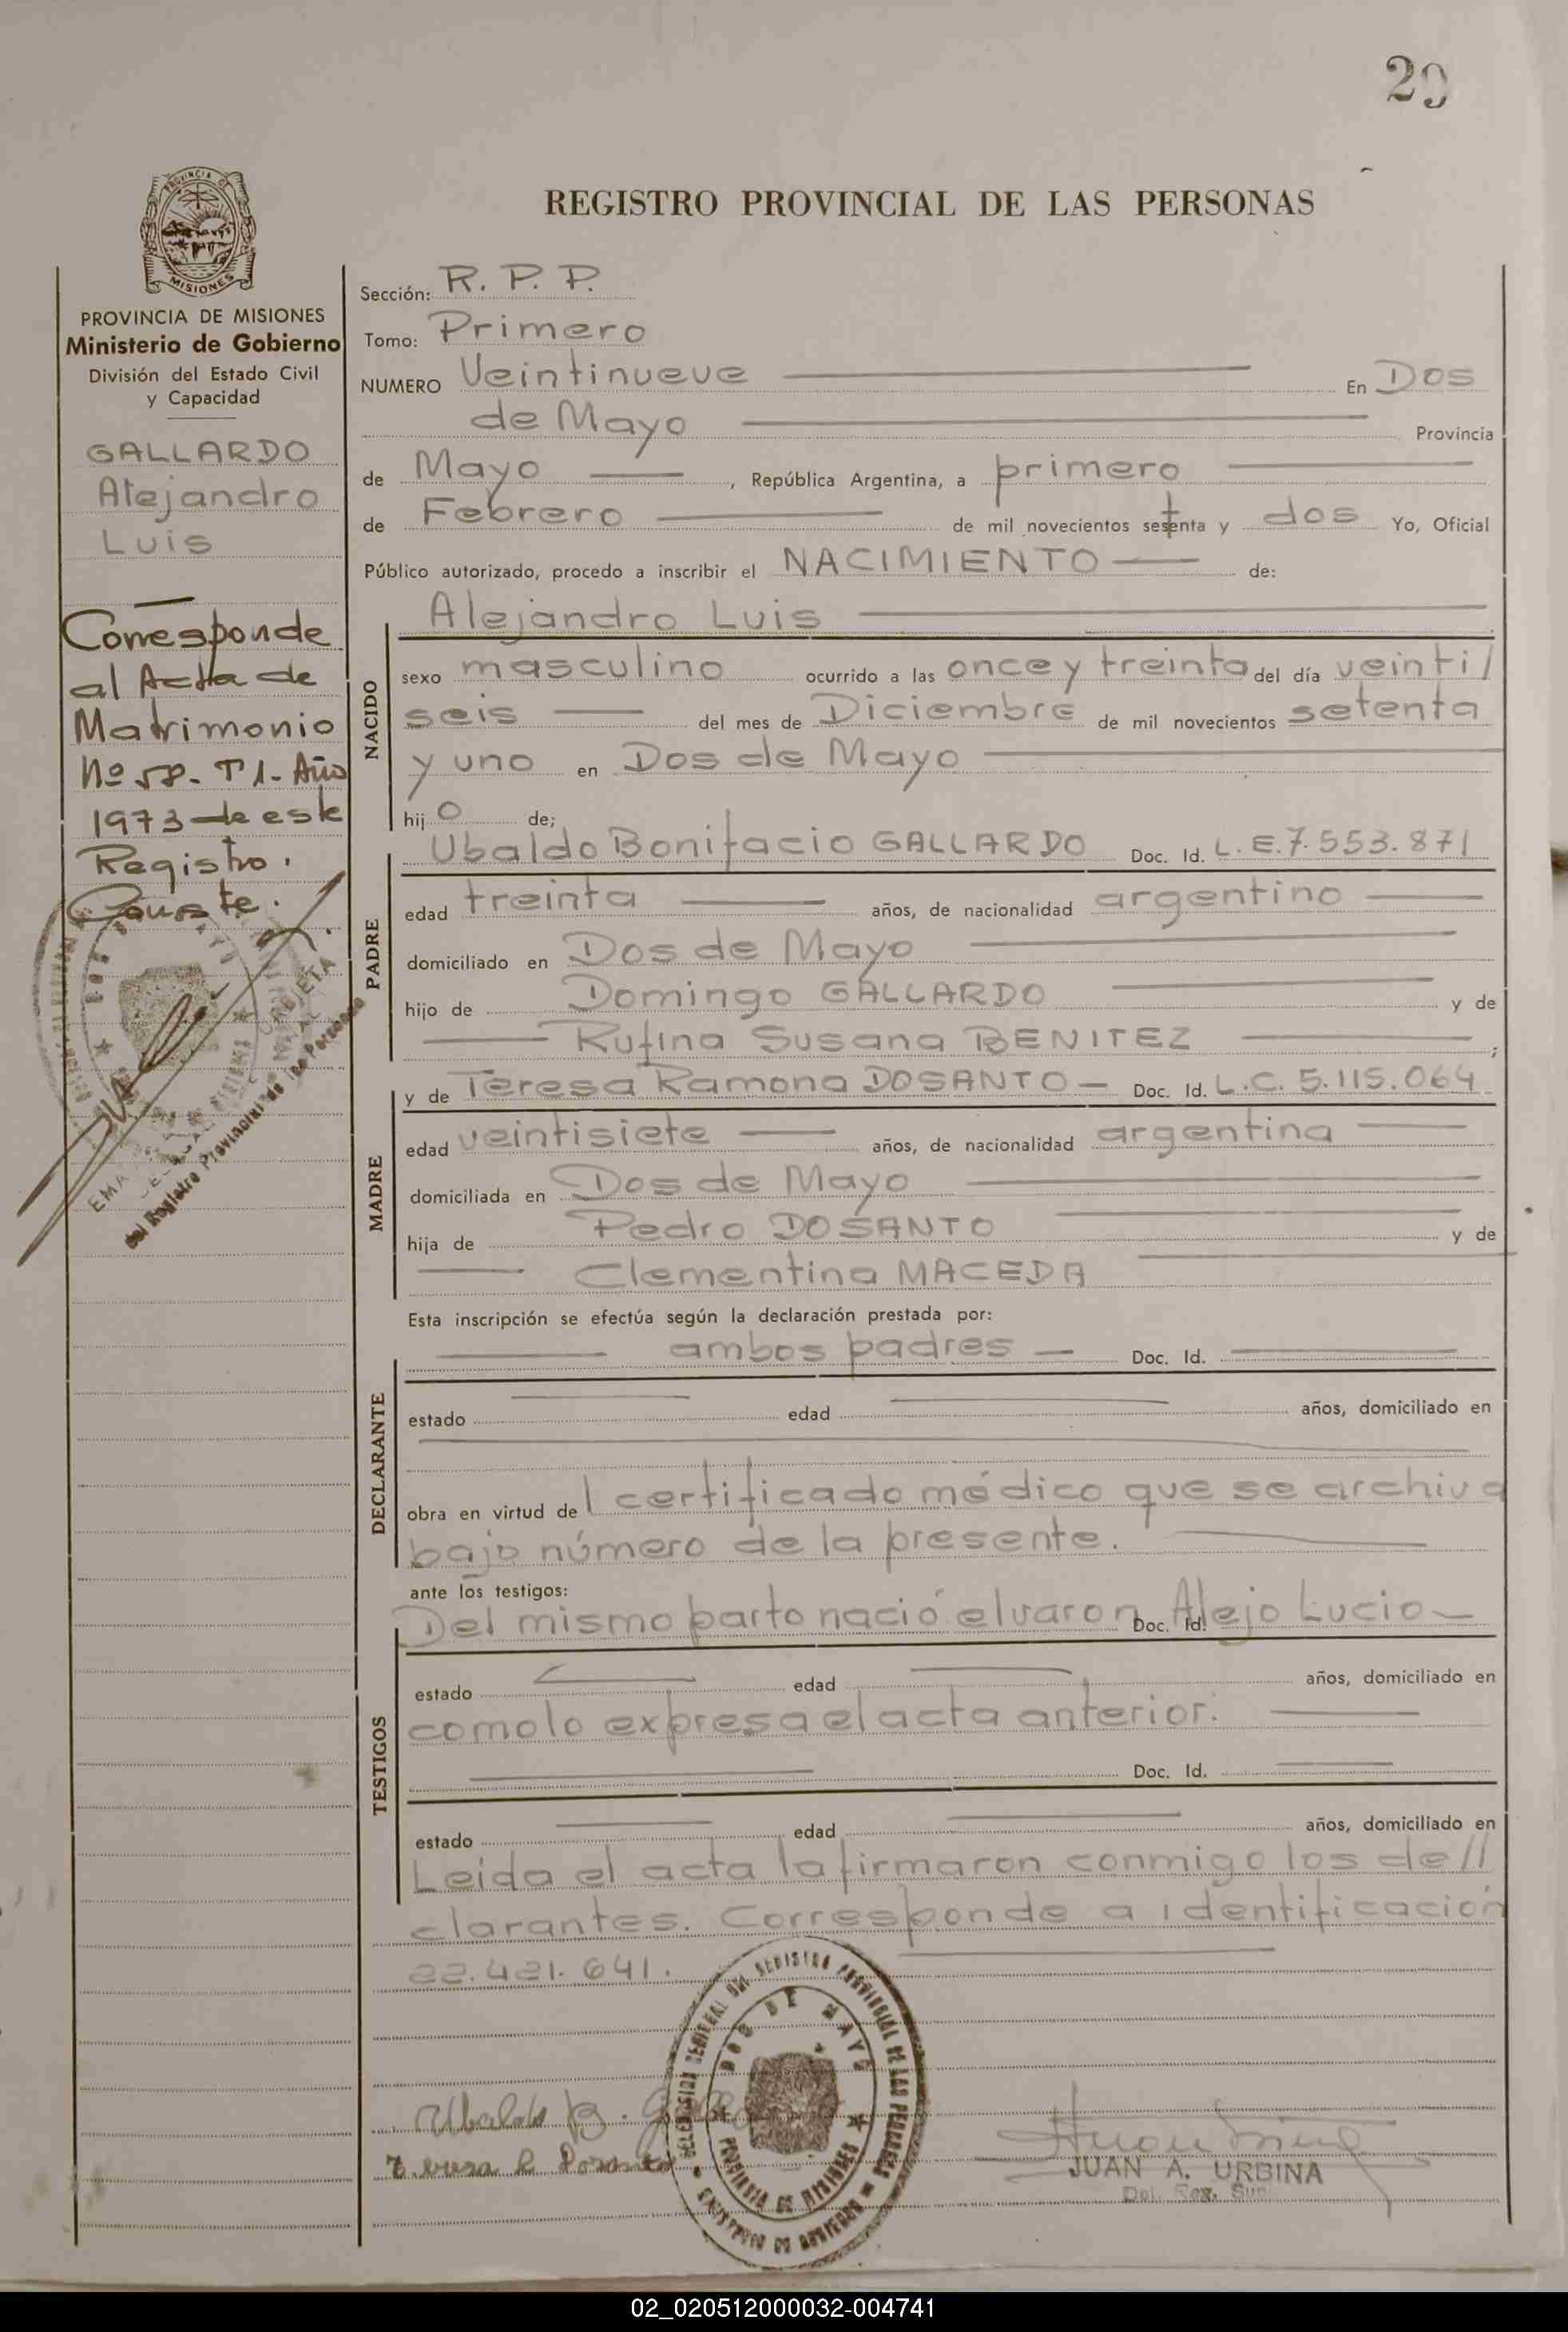 29
REGISTRO PROVINCIAL DE LAS PERSONAS
PROVINCIA DE
MISIONES
PROVINCIA DE MISIONES
Ministerio de Gobierno
División del Estado Civil
y Capacidad
GALLARDO
Alejandro
Luis
Corresponde
al Acta de
Matrimonio
Nº 58- T 1- Año
1973 de este
Registro.
Conste.
del Registro Provincial de las Personas
Sección: R. P. P.
Tomo: Primero
NUMERO Veintinueve En Dos
de Mayo Provincia
de Mayo , República Argentina, a primero
de Febrero de mil novecientos setenta y dos Yo, Oficial
Público autorizado, procedo a inscribir el NACIMIENTO de:
Alejandro Luis
NACIDO
sexo masculino ocurrido a las once y treinta del día veinti/
seis del mes de Diciembre de mil novecientos setenta
y uno en Dos de Mayo
hijo de;
Ubaldo Bonifacio GALLARDO Doc. Id. L. E. 7.553.871
PADRE
edad treinta años, de nacionalidad argentino
domiciliado en Dos de Mayo
hijo de Domingo GALLARDO y de
Rufina Susana BENITEZ ;
y de Teresa Ramona DOSANTO Doc. Id. L.C. 5.115.064
MADRE
edad veintisiete años, de nacionalidad argentina
domiciliada en Dos de Mayo
hija de Pedro DOSANTO y de
Clementina MACEDA
Esta inscripción se efectúa según la declaración prestada por:
ambos padres Doc. Id.
DECLARANTE
estado edad años, domiciliado en
obra en virtud del certificado médico que se archiva
bajo número de la presente.
ante los testigos:
Del mismo parto nació el varon Doc. Id. Alejo Lucio
TESTIGOS
estado edad años, domiciliado en
como lo expresa el acta anterior.
Doc. Id.
estado edad años, domiciliado en
Leída el acta la firmaron conmigo los de//
clarantes. Corresponde a identificación
22.421.641.
DELEGACION SECCIONAL DEL REGISTRO PROVINCIAL DE LAS PERSONAS
DOS DE MAYO
PROVINCIA DE MISIONES
MINISTERIO DE GOBIERNO
Ubaldo B.
JUAN A. URBINA
02_020512000032-004741